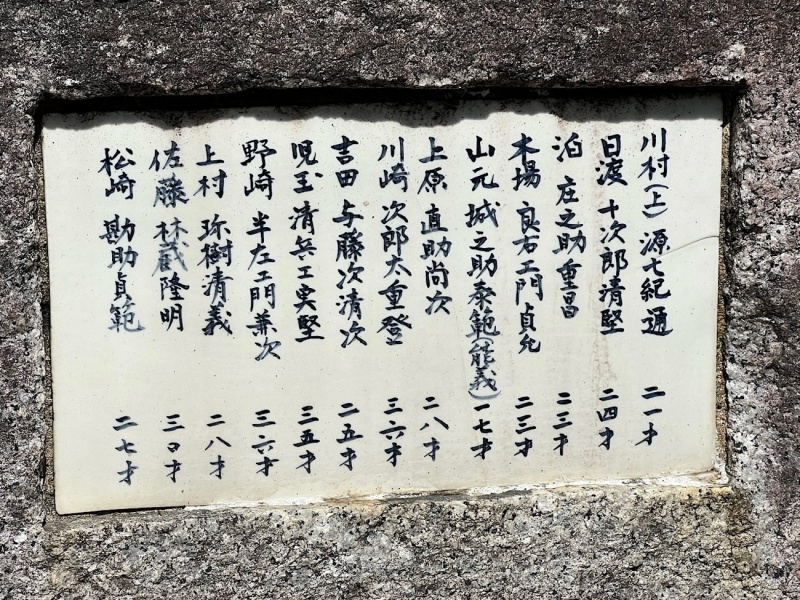 川村(上) 源七紀通 二一才
日渡 十次郎清堅 二四才
泊 庄之助重昌 二三才
木場 良右エ門貞允 二三才
山元 城之助泰範(能義) 一七才
上原 直助尚次 二八才
川崎 次郎太重登 三六才
吉田 与藤次清次 二五才
児玉 清兵エ実堅 三五才
野崎 半左エ門兼次 三六才
上村 弥樹清義 二八才
佐藤 林蔵隆明 三〇才
松崎 勘助貞範 二七才